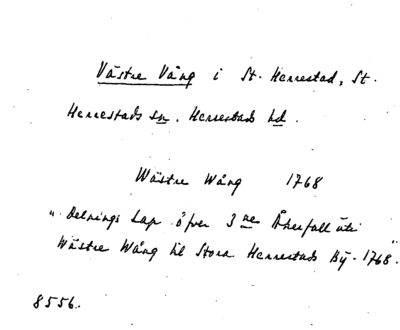 Västre Vång i St. Herrestad, St.
Herrestads sn. Herrestads hd.
Wästre Wång 1768
"Delnings Lap öfver 3ne Åkerfall uti
Wästre Wång til Stora Herrestads By - 1768."
8556.